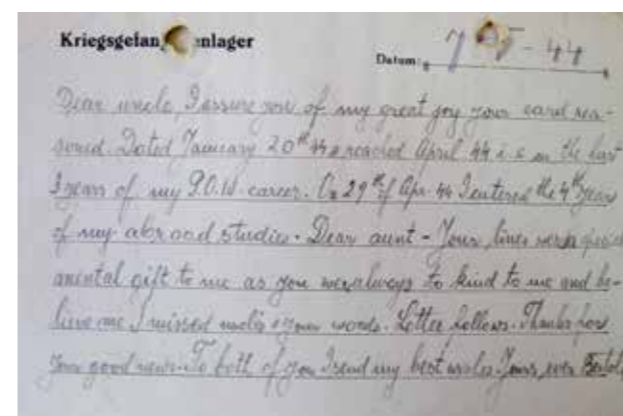 Kriegsgefan enlager
Datum: 7 - 5 - 44
Dear uncle, I assure you of my great joy your card rea-
soned. Dated January 20th 44 reached April 44 i.e. in the last
3 years of my P.O.W. career. On 29th of Apr. 44 I entered the 4th year
of my abroad studies. Dear aunt - Your lines were a
mental gift to me as you were always to kind to me and be-
lieve me I missed uncle's & your words. Letter follows. Thanks for
your good news. To both of you I send my best wishes. Yours, ever